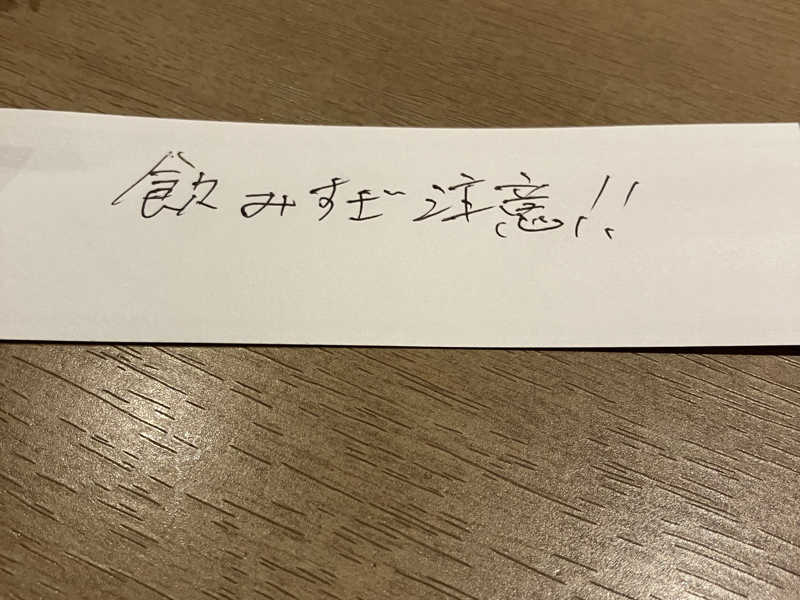 飲みすぎ注意!!